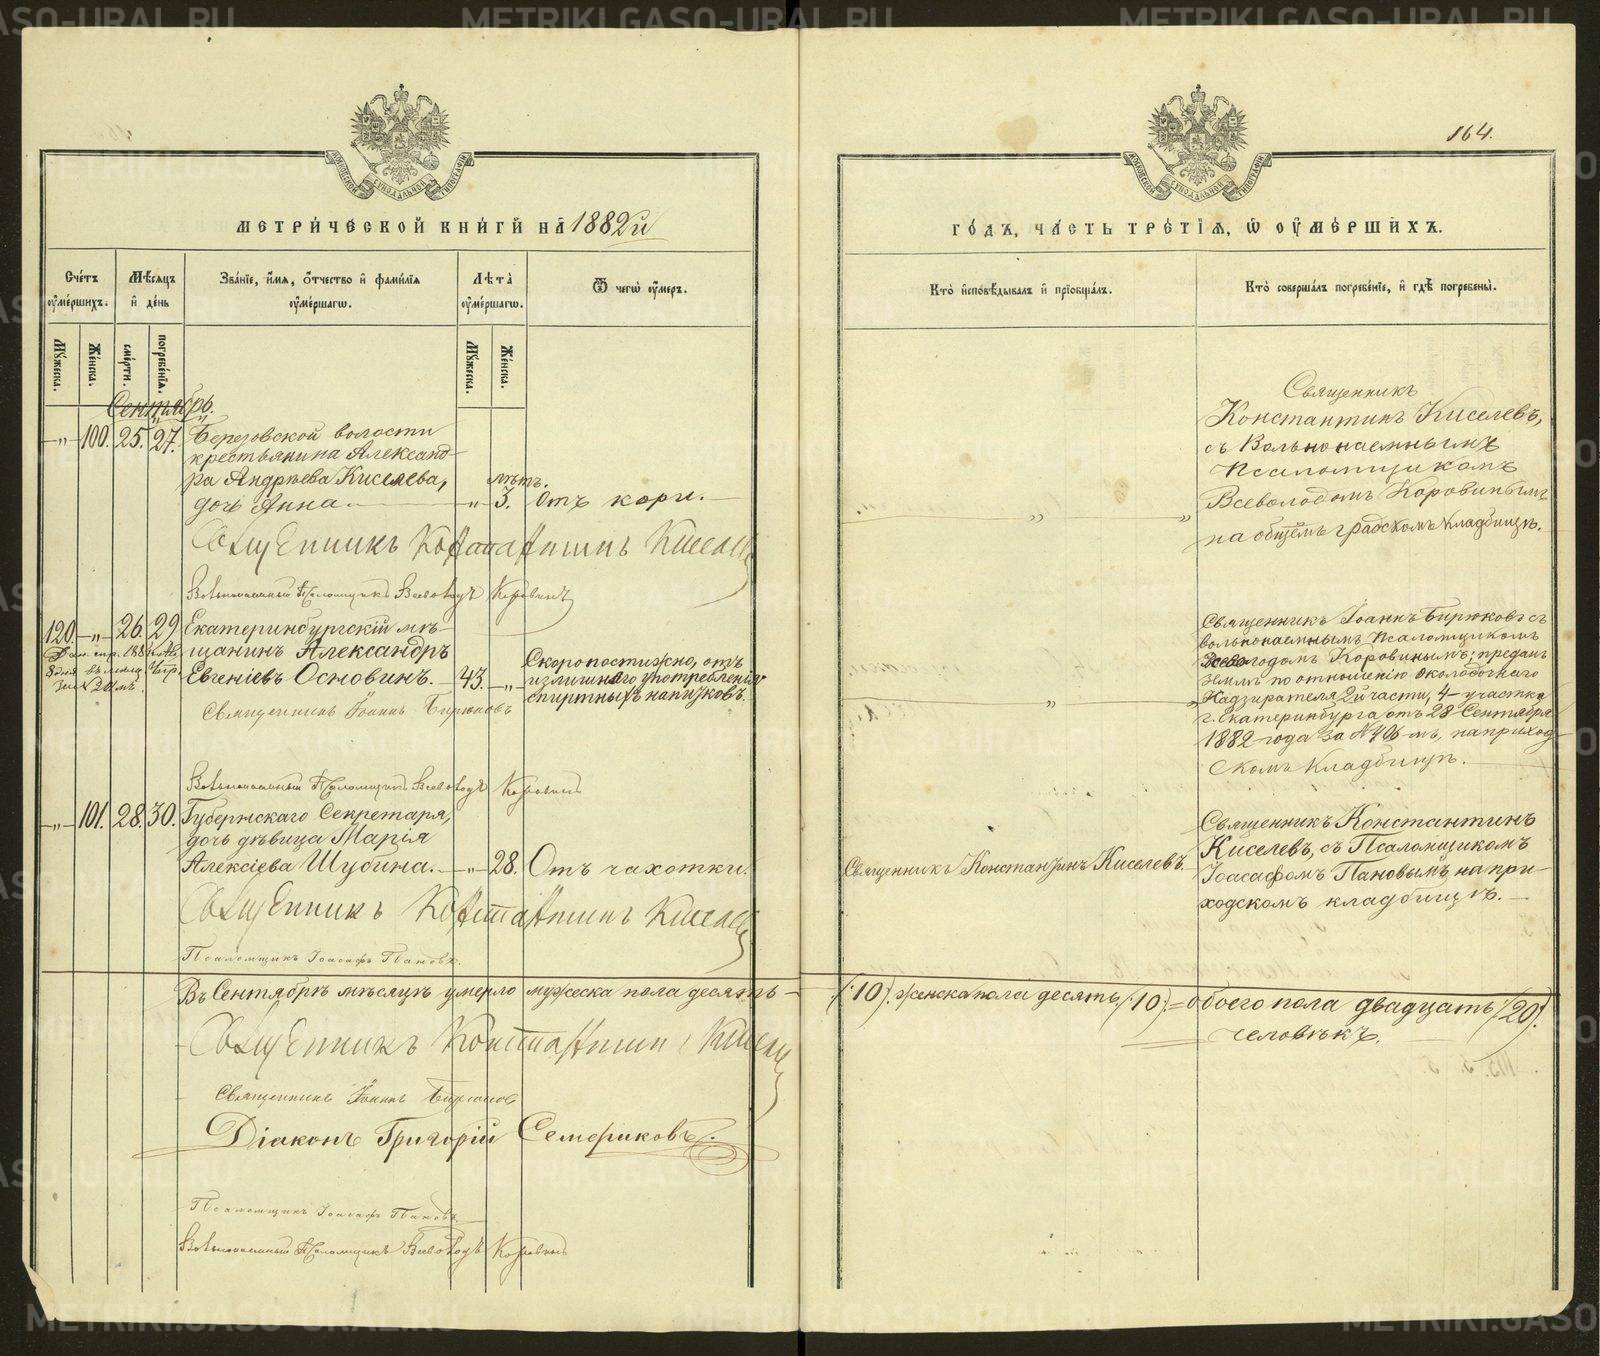 METRIKI.GASO-URAL.RU
164.
МЕТРИЧЕСКОЙ КНИГИ НА 1882й
ГОДЪ, ЧАСТЬ ТРЕТІЯ, Ѡ ОУМЕРШИХЪ.
Счетъ оумершихъ.
Мѣсяцъ и день
Званіе, имя, отчество и фамилія оумершагѡ.
Лѣта оумершагѡ.
Ѿ чегѡ оумеръ.
Кто исповѣдывалъ и пріобщалъ.
Кто совершалъ погребеніе, и гдѣ погребены.
Мужеска.
Женска.
смерти.
погребенія.
Мужеска.
Женска.
Сентябрь.
-„- 100. 25. 27. Березовской волости
крестьянина Александ-
ра Андрѣева Киселева, лѣтъ.
дочь Анна. -„- 3. Отъ кори.
Священникъ Константинъ Киселевъ
Вольнонаемный Псаломщикъ Всеволодъ Коровинъ
Священникъ
Константинъ Киселевъ,
съ Вольнонаемнымъ
Псаломщикомъ
Всеволодомъ Коровинымъ
на общемъ градскомъ кладбищѣ.
120. -„- 26. 29 Екатеринбургскій мѣ-
щанинъ Александръ
Евгеніевъ Основинъ. 43. -„-
Скоропостижно, отъ
излишняго употребленія
спиртныхъ напитковъ.
Священникъ Іоаннъ Бирюковъ
Вольнонаемный Псаломщикъ Всеволодъ Коровинъ
Священникъ Іоаннъ Бирюковъ съ
вольнонаемнымъ Псаломщикомъ
Всеволодомъ Коровинымъ; преданъ
землѣ по отношенію околодочнаго
Надзирателя 2й части, 4 участка
г. Екатеринбурга отъ 28 Сентября
1882 года за № 406-мъ, на приход-
скомъ кладбищѣ.
-„- 101. 28. 30. Губернскаго Секретаря,
дочь дѣвица Марія
Алексіева Шубина. -„- 28. Отъ чахотки.
Священникъ Константинъ Киселевъ
Псаломщикъ Іоасафъ Пановъ.
Священникъ Константинъ Киселевъ.
Священникъ Константинъ
Киселевъ, съ Псаломщикомъ
Іоасафомъ Пановымъ, на при-
ходскомъ кладбищѣ.
Въ Сентябрѣ мѣсяцѣ умерло мужеска пола десять
(10). женска пола десять (10) = обоего пола двадцать (20).
человѣкъ.
Священникъ Константинъ Киселевъ
Священникъ Іоаннъ Бирюковъ
Діаконъ Григорій Семериковъ.
Псаломщикъ Іоасафъ Пановъ.
Вольнонаемный Псаломщикъ Всеволодъ Коровинъ